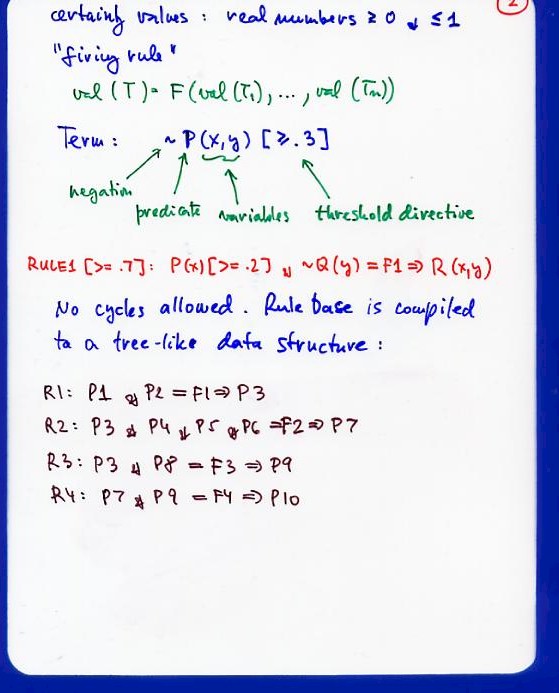 2
certainty values : real numbers ≥ 0 & ≤ 1
"firing rule"
val (T) = F(val (T1), ..., val (Tn))
Term : ~ P(x,y) [≥.3]
negation
predicate variables threshold directive
RULE1 [>= .7]: P(x)[>= .2] & ~Q(y) =F1=> R(x,y)
No cycles allowed. Rule base is compiled
to a tree-like data structure :
R1: P1 & P2 =F1=> P3
R2: P3 & P4 & P5 & P6 =F2=> P7
R3: P3 & P8 =F3=> P9
R4: P7 & P9 =F4=> P10